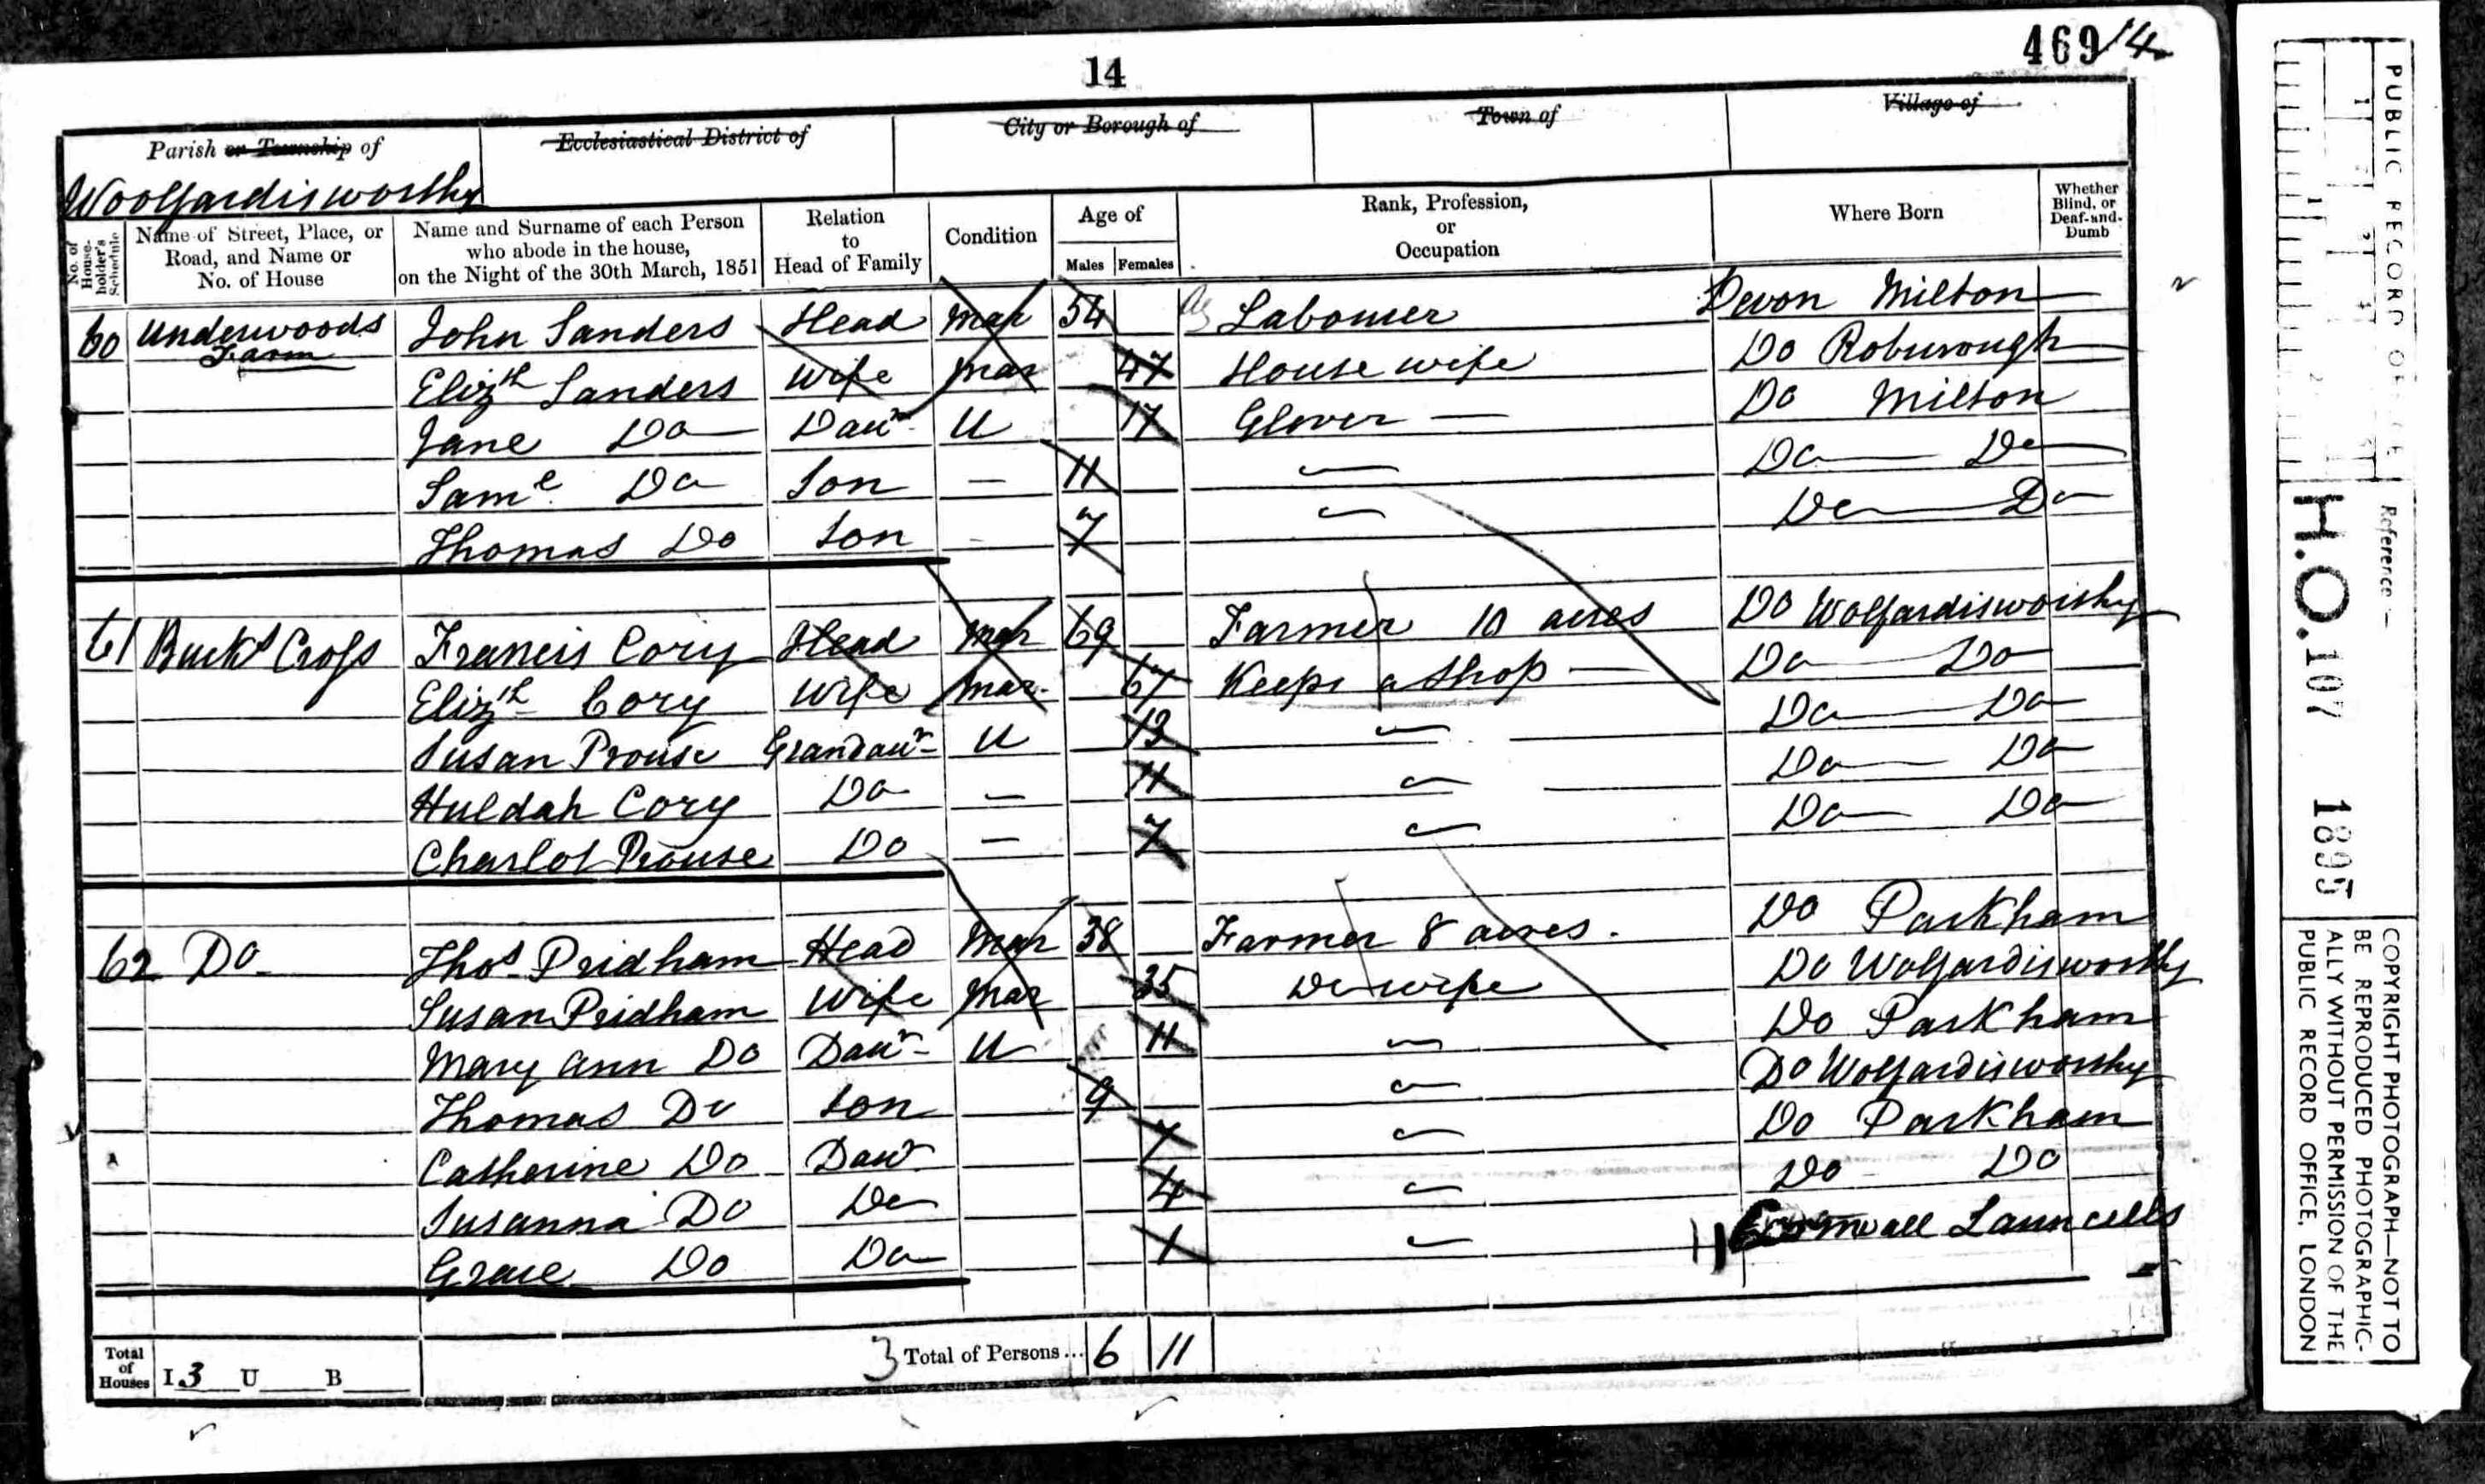 469 14
14
Parish or Township of
Ecclesiastical District of
City or Borough of
Town of
Village of
Woolfardisworthy
No. of House-holder's Schedule
Name of Street, Place, or Road, and Name or No. of House
Name and Surname of each Person who abode in the house, on the Night of the 30th March, 1851
Relation to Head of Family
Condition
Age of
Males Females
Rank, Profession, or Occupation
Where Born
Whether Blind, or Deaf-and-Dumb
60 Underwoods Farm John Sanders Head Mar 54 Labourer Devon Milton
Elizth Sanders Wife Mar 47 House wife Do Roburough
Jane Do Daur U 17 Glover — Do Milton
Saml Do Son — 11 Do Do
Thomas Do Son - 7 Do Do
61 Bucks Cross Francis Cory Head Mar 69 Farmer 10 acres Do Wolfardisworthy
Elizth Cory Wife Mar 67 Keeps a Shop — Do Do
Susan Prouse Grandaur U 13 Do Do
Huldah Cory Do — 11 Do Do
Charlot Prouse Do — 7 Do Do
62 Do Thos Pridham Head Mar 38 Farmer 8 acres. Do Parkham
Susan Pridham Wife Mar 35 Do wife Do Wolfardisworthy
Mary Ann Do Daur U 11 Do Parkham
Thomas Do Son 9 Do Wolfardisworthy
Catherine Do Daur 7 Do Parkham
Susanna Do Do 4 Do Do
Grace Do Do 1 Cornwall Launcells
Total of Houses I 3 U B
3 Total of Persons... 6 11
PUBLIC RECORD OFFICE
Reference :-
H.O.107 1895
COPYRIGHT PHOTOGRAPH—NOT TO
BE REPRODUCED PHOTOGRAPHIC-
ALLY WITHOUT PERMISSION OF THE
PUBLIC RECORD OFFICE, LONDON